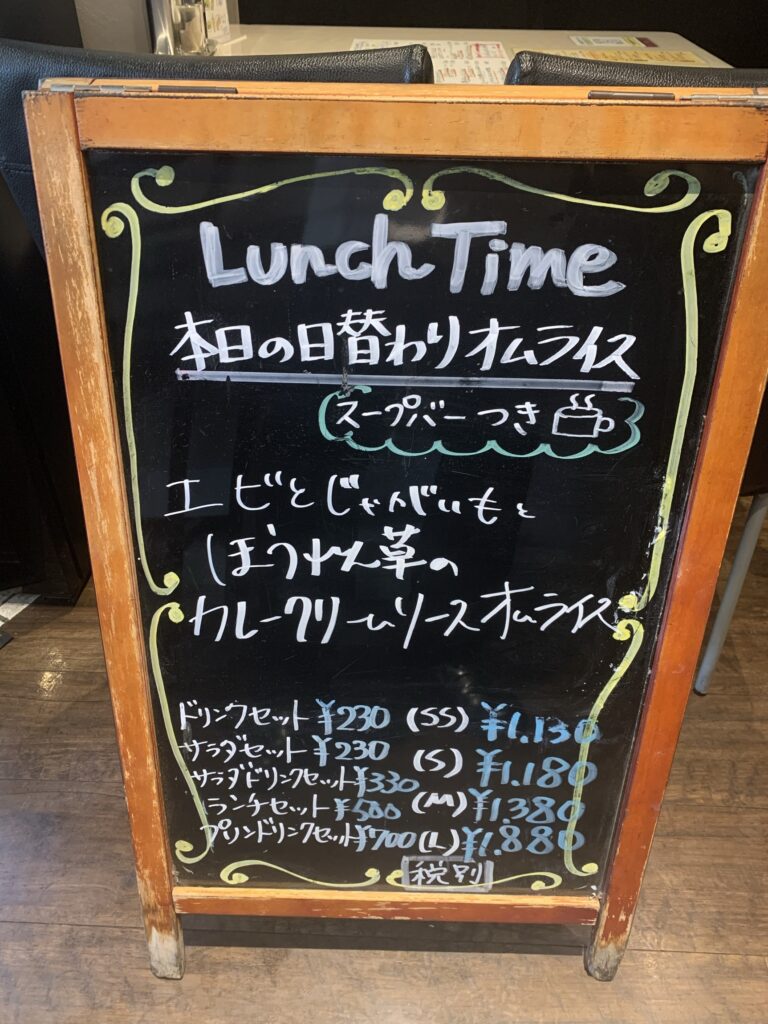 Lunch Time
本日の日替わりオムライス
スープバーつき
エビとじゃがいもと
ほうれん草の
カレークリームソースオムライス
ドリンクセット ¥230 (SS) ¥1.130
サラダセット ¥230 (S) ¥1.180
サラダドリンクセット ¥330 (M) ¥1.380
ランチセット ¥500 (L) ¥1.880
プリンドリンクセット ¥700
税別